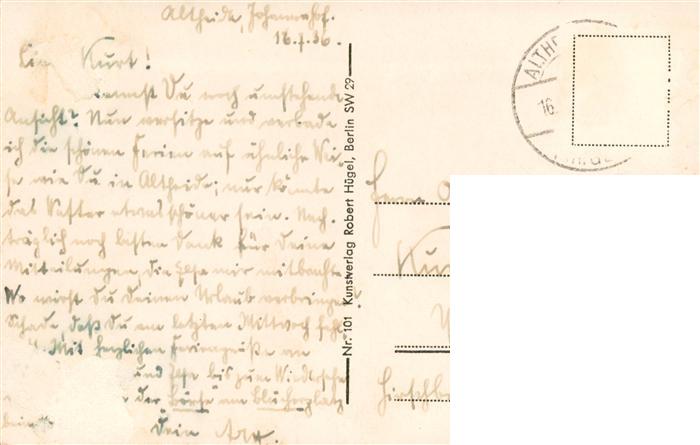 Altheide, Johannenhof.
16.7.36.
Kurt!
kennst Du noch umstehende
Ansicht? Nun versitze und verbade
ich die schönen Ferien auf ähnliche Wei-
se wie Du in Altheide; nur könnte
das Wetter etwas schöner sein. Nach-
träglich noch besten Dank für Deine
Mitteilungen, die Ilse mir mitbrachte.
Wo wirst Du Deinen Urlaub verbringen?
Schade, daß Du am letzten Mittwoch
Mit herzlichen Feriengrüßen
und Ilse bis zum Wiedersehen
der Börse am Blücherplatz
Dein
Nr. 101 Kunstverlag Robert Hügel, Berlin SW 29
ALTH
16.
Herrn
Kur
Hirschb